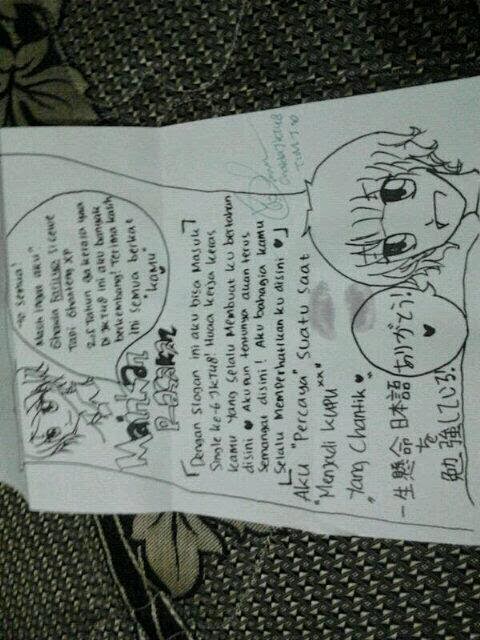 semua!
Masih ingat aku?
Ghaida Farisya si cewe
Tapi Ghanteng XP
2,5 Tahun ga kerasa yaa
Di JKT48 ini aku banyak
berkembang! Terima kasih
Ini semua berkat
"kamu"
「Dengan slogan ini aku bisa masuk
Single ke-6 JKT48! Huaa kerja keras
kamu yang selalu membuat ku bertahan
disini ♥ Aku pun tentunya akan terus
semangat disini! Aku bahagia kamu
selalu memperhatikan ku disini ♥」
Aku "Percaya" suatu saat
"Menjadi kupu"
"Yang Chantik ♥
一生懸命日本語
を
勉強している!
ありがとう!
♥
JKT48